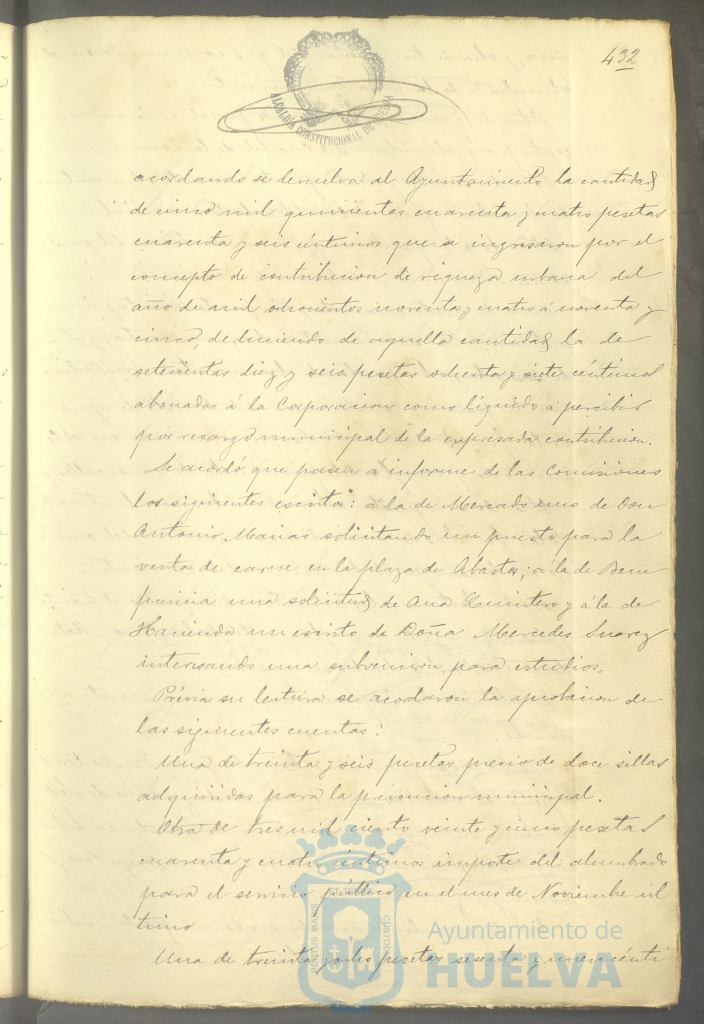 432
ALCALDIA CONSTITUCIONAL DE HUELVA
acordando se devuelva al Ayuntamiento la cantidad
de cinco mil quinientas cuarenta y cuatro pesetas
cuarenta y seis céntimos que se ingresaron por el
concepto de contribucion de riqueza urbana del
año de mil ochocientos noventa y cuatro á noventa y
cinco, deduciendo de aquella cantidad la de
setecientas diez y seis pesetas ochenta y siete céntimos
abonadas á la Corporacion como líquido á percibir
por recargo municipal de la expresada contribucion.
Se acordó que pasen á informe de las Comisiones
los siguientes escritos: á la de Mercado uno de Don
Antonio Macias solicitando un puesto para la
venta de carne en la plaza de Abastos; á la de Bene
ficencia una solicitud de Ana Quintero y á la de
Hacienda un escrito de Doña Mercedes Suarez
interesando una subvencion para estudios.
Prévia su lectura se acordaron la aprobacion de
las siguientes cuentas:
Una de treinta y seis pesetas precio de doce sillas
adquiridas para la prevencion municipal.
Otra de tres mil ciento veinte y cinco pesetas
cuarenta y cuatro céntimos importe del alumbrado
para el servicio público en el mes de Noviembre úl
timo
Una de treinta y ocho pesetas sesenta y nueve cénti
PORTUS MARIS CUSTODIA
Ayuntamiento de
HUELVA